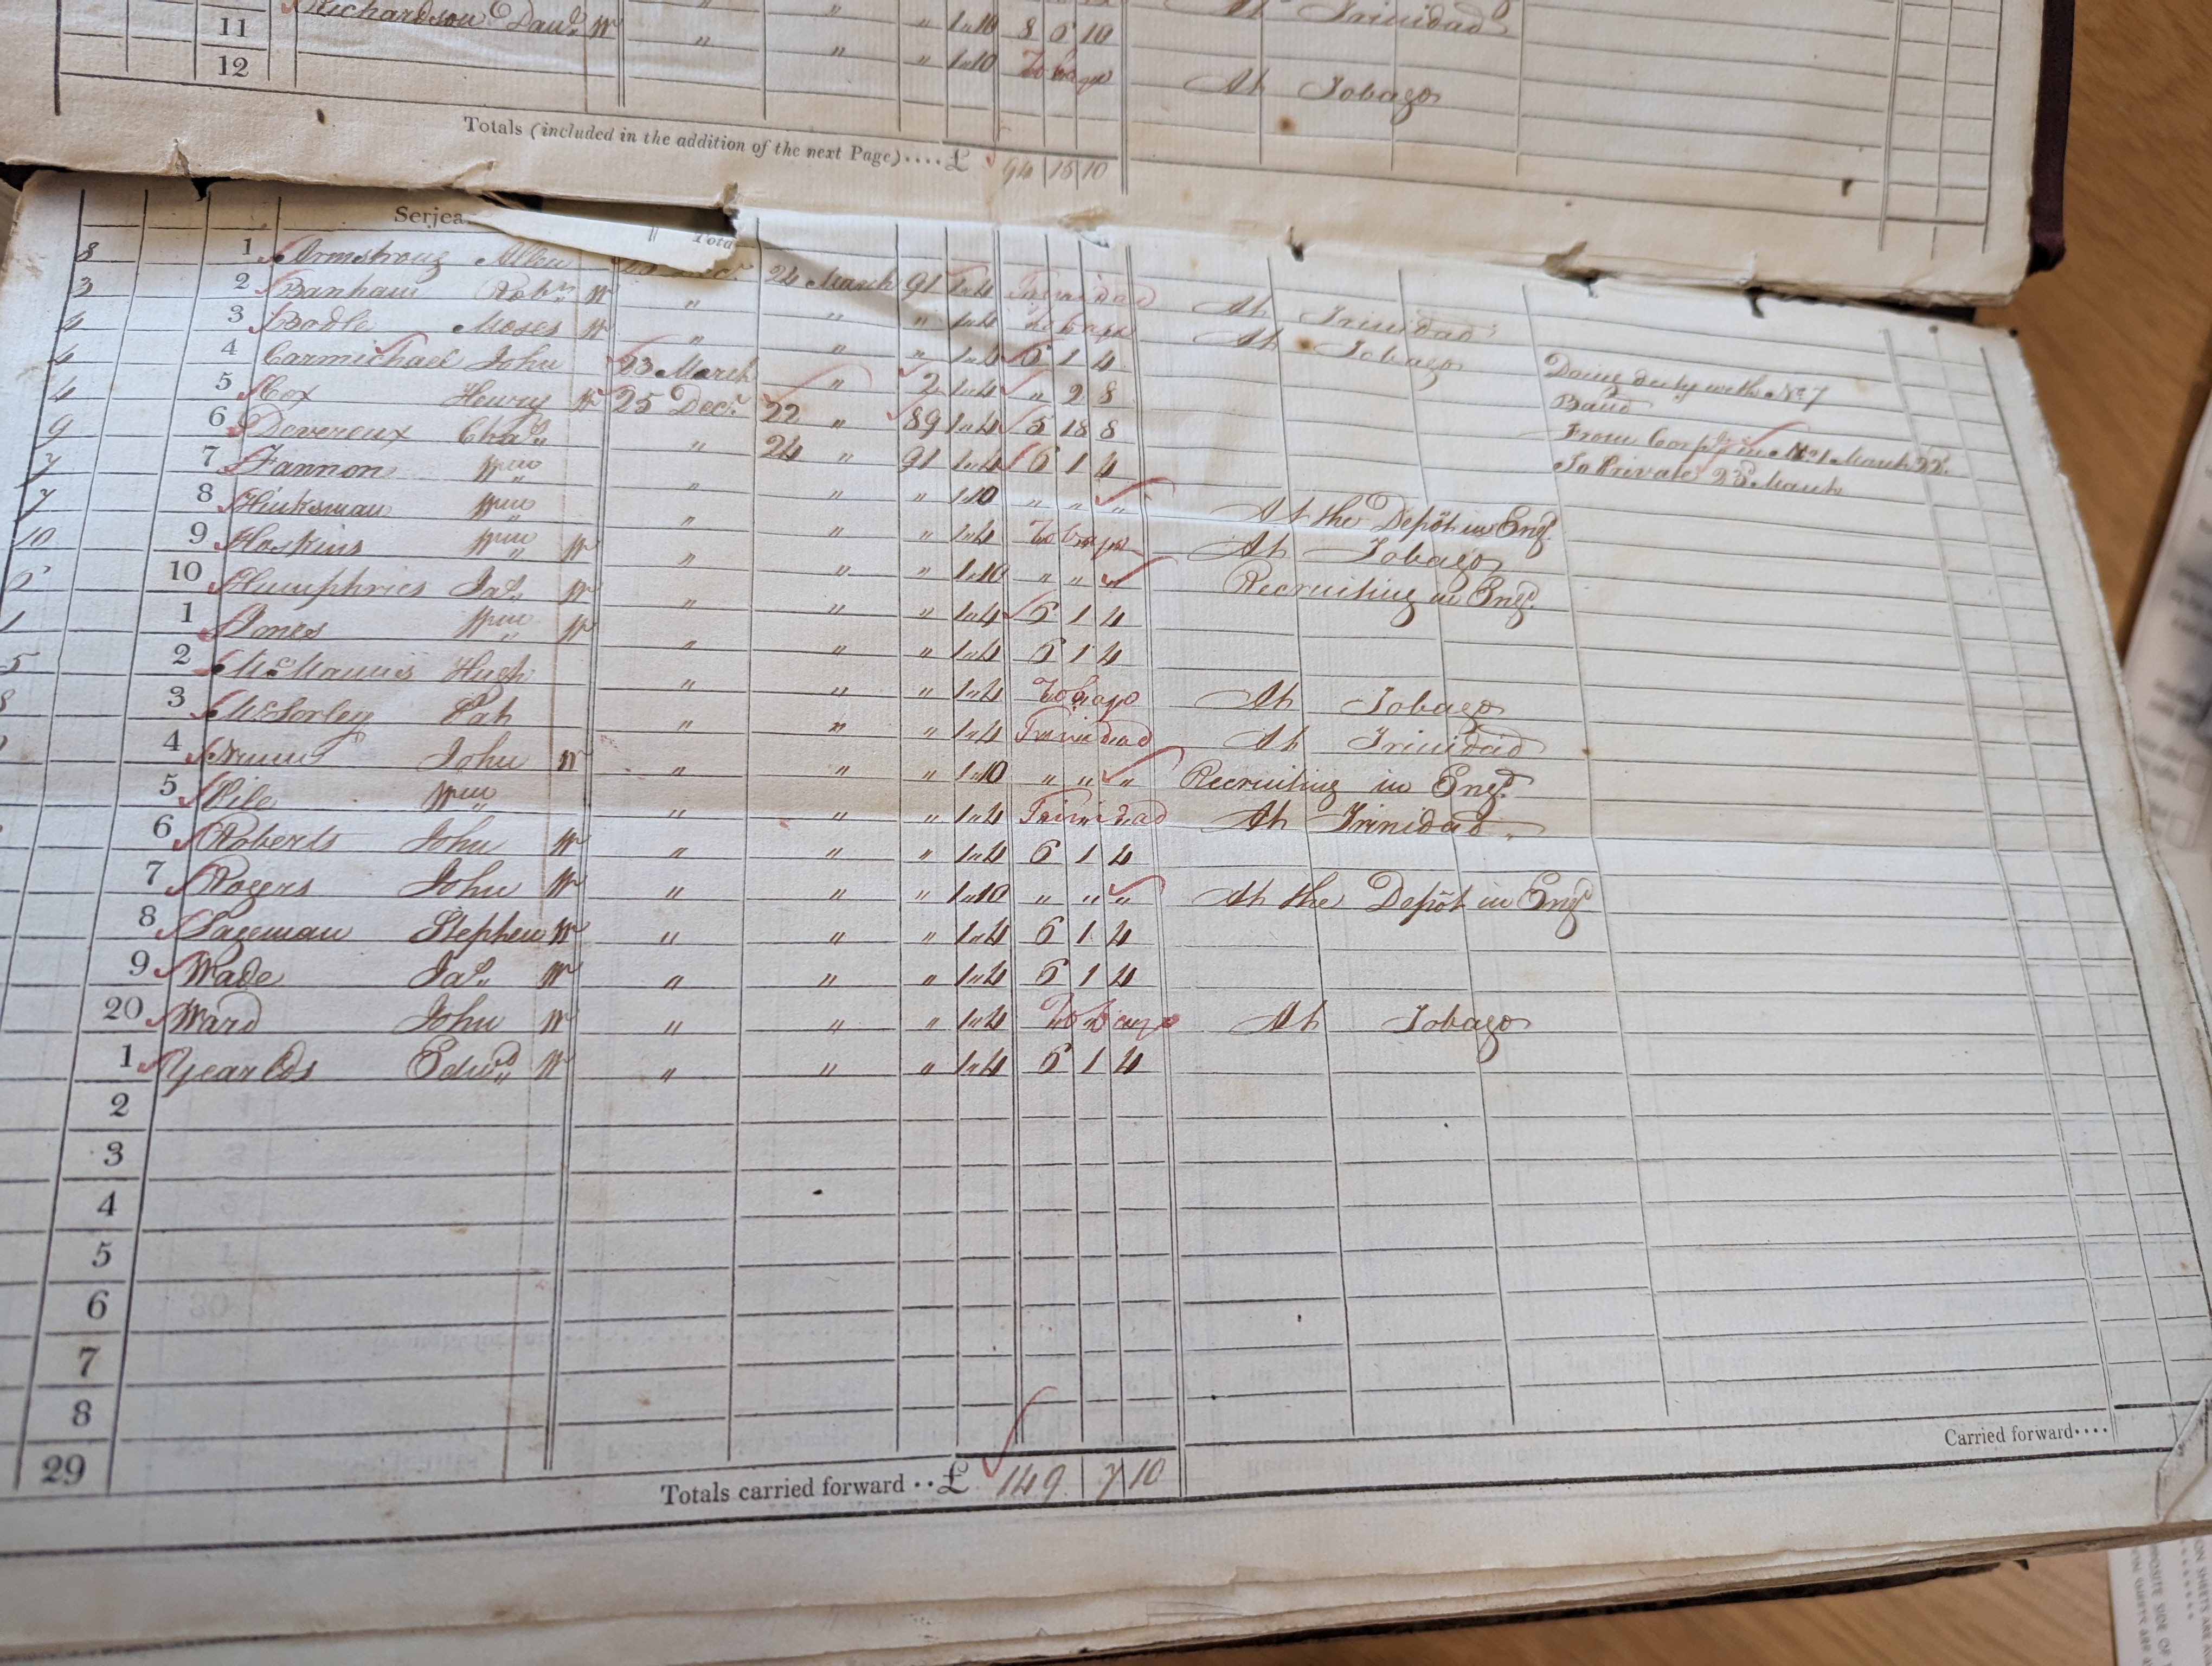 11 Richardson Danl. W " " " 1"10 8 6 10 At Trinidad
12 " " " 1"10 Tobago At Tobago
Totals (included in the addition of the next Page) .... £ 94 15 10
Serjea
Tota
8 1 Armstrong Allen 25 Decr. 24 March 91 1"4 Trinidad At Trinidad
3 2 Banham Robt. W " " " 1"4 Tobago At Tobago
4 3 Bodle Moses W " " " 1"4 6 1 4 Doing duty with No. 7
4 4 Carmichael John 23 March " 2 1"4 " 2 8 Band
4 5 Cox Henry W 25 Decr. 22 " 89 1"4 5 18 8 From Corpl. in No. 1 March 22d.
9 6 Devereux Chas. " 24 " 91 1"4 6 1 4 To Private 23d. March
7 7 Fannon Wm. " " " 1"10 " " " At the Depôt in Engd.
7 8 Hinksman Wm. " " " 1"4 Tobago At Tobago
10 9 Hoskins Wm. W " " " 1"10 " " " Recruiting in Engd.
6 10 Humphries Jas. W " " " 1"4 6 1 4
1 1 Jones Wm. W " " " 1"4 6 1 4
5 2 McManus Hugh " " " 1"4 Tobago At Tobago
8 3 McSorley Pat " " " 1"4 Trinidad At Trinidad
4 John W " " " 1"10 " " " Recruiting in Engd.
5 Pile Wm. " " " 1"4 Trinidad At Trinidad
6 Roberts John W " " " 1"4 6 1 4
7 Rogers John W " " " 1"10 " " " At the Depôt in Engd
8 Sageman Stephen W " " " 1"4 6 1 4
9 Wade Jas. W " " " 1"4 6 1 4
20 Ward John W " " " 1"4 Tobago At Tobago
1 Yearlds Edwd. W " " " 1"4 6 1 4
2
3
4
5
6
7
8
29
Carried forward....
Totals carried forward .. £ 149 7 10